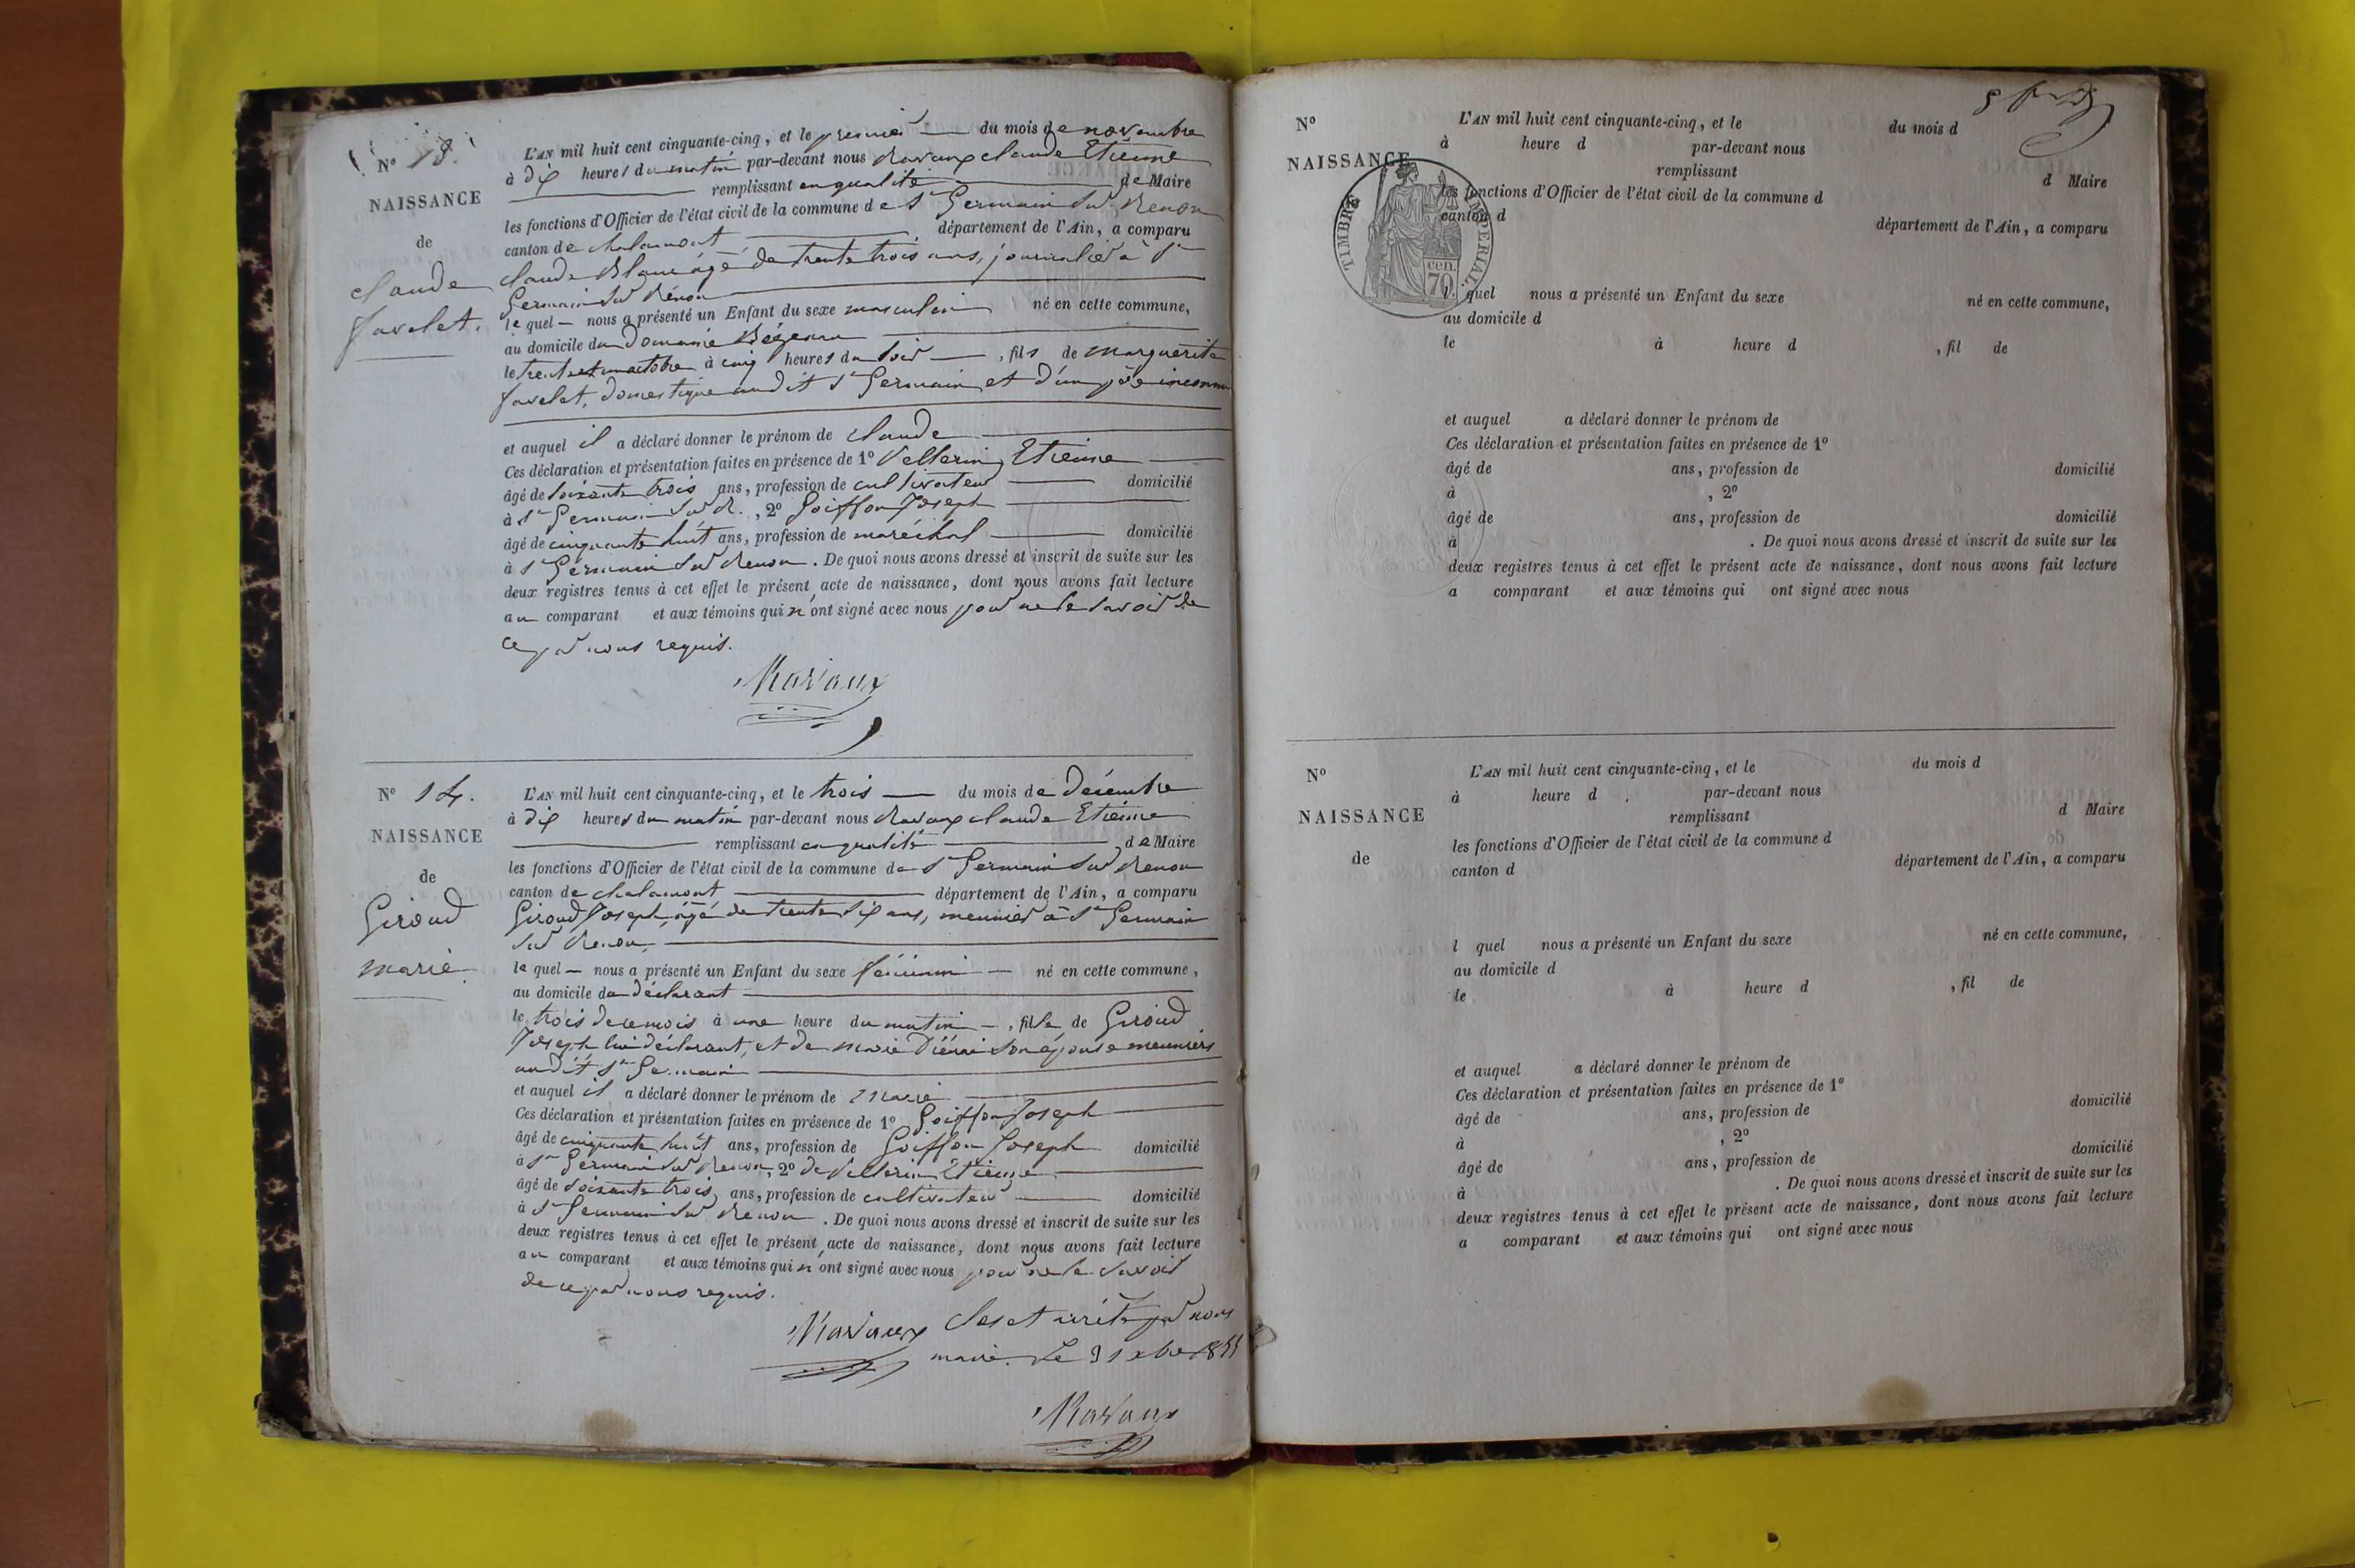 N° 13.
NAISSANCE
de
claude
favelet.
L'AN mil huit cent cinquante-cinq, et le premier du mois de novembre
à dix heures du matin par-devant nous Ravaux claude Etienne
remplissant en qualité de Maire
les fonctions d'Officier de l'état civil de la commune de St Germain sur Renon
canton de chalamont département de l'Ain, a comparu
claude Blanc âgé de trente trois ans, journalier à St
Germain sur Renon
le quel nous a présenté un Enfant du sexe masculin né en cette commune,
au domicile du Domaine
le trente et un octobre à cinq heures du soir, fils de marguerite
favelet, domestique audit St Germain et d'un père inconnu
et auquel il a déclaré donner le prénom de claude
Ces déclaration et présentation faites en présence de 1° Vellerin Etienne
âgé de soixante trois ans, profession de cultivateur domicilié
à St Germain sur R., 2° Goiffon Joseph
âgé de cinquante huit ans, profession de maréchal domicilié
à St Germain sur Renon. De quoi nous avons dressé et inscrit de suite sur les
deux registres tenus à cet effet le présent acte de naissance, dont nous avons fait lecture
au comparant et aux témoins qui n'ont signé avec nous pour ne le savoir de
ce par nous requis.
Ravaux
N° 14.
NAISSANCE
de
Giroud
marie.
L'AN mil huit cent cinquante-cinq, et le trois du mois de décembre
à dix heures du matin par-devant nous Ravaux claude Etienne
remplissant en qualité de Maire
les fonctions d'Officier de l'état civil de la commune de St Germain sur Renon
canton de chalamont département de l'Ain, a comparu
Giroud Joseph, âgé de trente six ans, meunier à St Germain
sur Renon
le quel nous a présenté un Enfant du sexe féminin né en cette commune,
au domicile du déclarant
le trois de ce mois à une heure du matin, fille de Giroud
Joseph lui déclarant, et de marie son épouse meuniers
audit St Germain
et auquel il a déclaré donner le prénom de Marie
Ces déclaration et présentation faites en présence de 1° Goiffon Joseph
âgé de cinquante huit ans, profession de Goiffon Joseph domicilié
à St Germain sur Renon, 2° de Vellerin Etienne
âgé de soixante trois ans, profession de cultivateur domicilié
à St Germain sur Renon. De quoi nous avons dressé et inscrit de suite sur les
deux registres tenus à cet effet le présent acte de naissance, dont nous avons fait lecture
au comparant et aux témoins qui n'ont signé avec nous pour ne le savoir
de ce par nous requis.
Ravaux Clos et arrêté par nous
maire. Le 31 xbre 1855
Ravaux
N°
NAISSANCE
TIMBRE IMPERIAL
70 cen.
L'AN mil huit cent cinquante-cinq, et le du mois d
à heure d par-devant nous
remplissant d Maire
les fonctions d'Officier de l'état civil de la commune d
canton d département de l'Ain, a comparu
l quel nous a présenté un Enfant du sexe né en cette commune,
au domicile d
le à heure d , fil de
et auquel a déclaré donner le prénom de
Ces déclaration et présentation faites en présence de 1°
âgé de ans, profession de domicilié
à , 2°
âgé de ans, profession de domicilié
à . De quoi nous avons dressé et inscrit de suite sur les
deux registres tenus à cet effet le présent acte de naissance, dont nous avons fait lecture
a comparant et aux témoins qui ont signé avec nous
N°
NAISSANCE
de
L'AN mil huit cent cinquante-cinq, et le du mois d
à heure d par-devant nous
remplissant d Maire
les fonctions d'Officier de l'état civil de la commune d
canton d département de l'Ain, a comparu
l quel nous a présenté un Enfant du sexe né en cette commune,
au domicile d
le à heure d , fil de
et auquel a déclaré donner le prénom de
Ces déclaration et présentation faites en présence de 1°
âgé de ans, profession de domicilié
à , 2°
âgé de ans, profession de domicilié
à . De quoi nous avons dressé et inscrit de suite sur les
deux registres tenus à cet effet le présent acte de naissance, dont nous avons fait lecture
a comparant et aux témoins qui ont signé avec nous